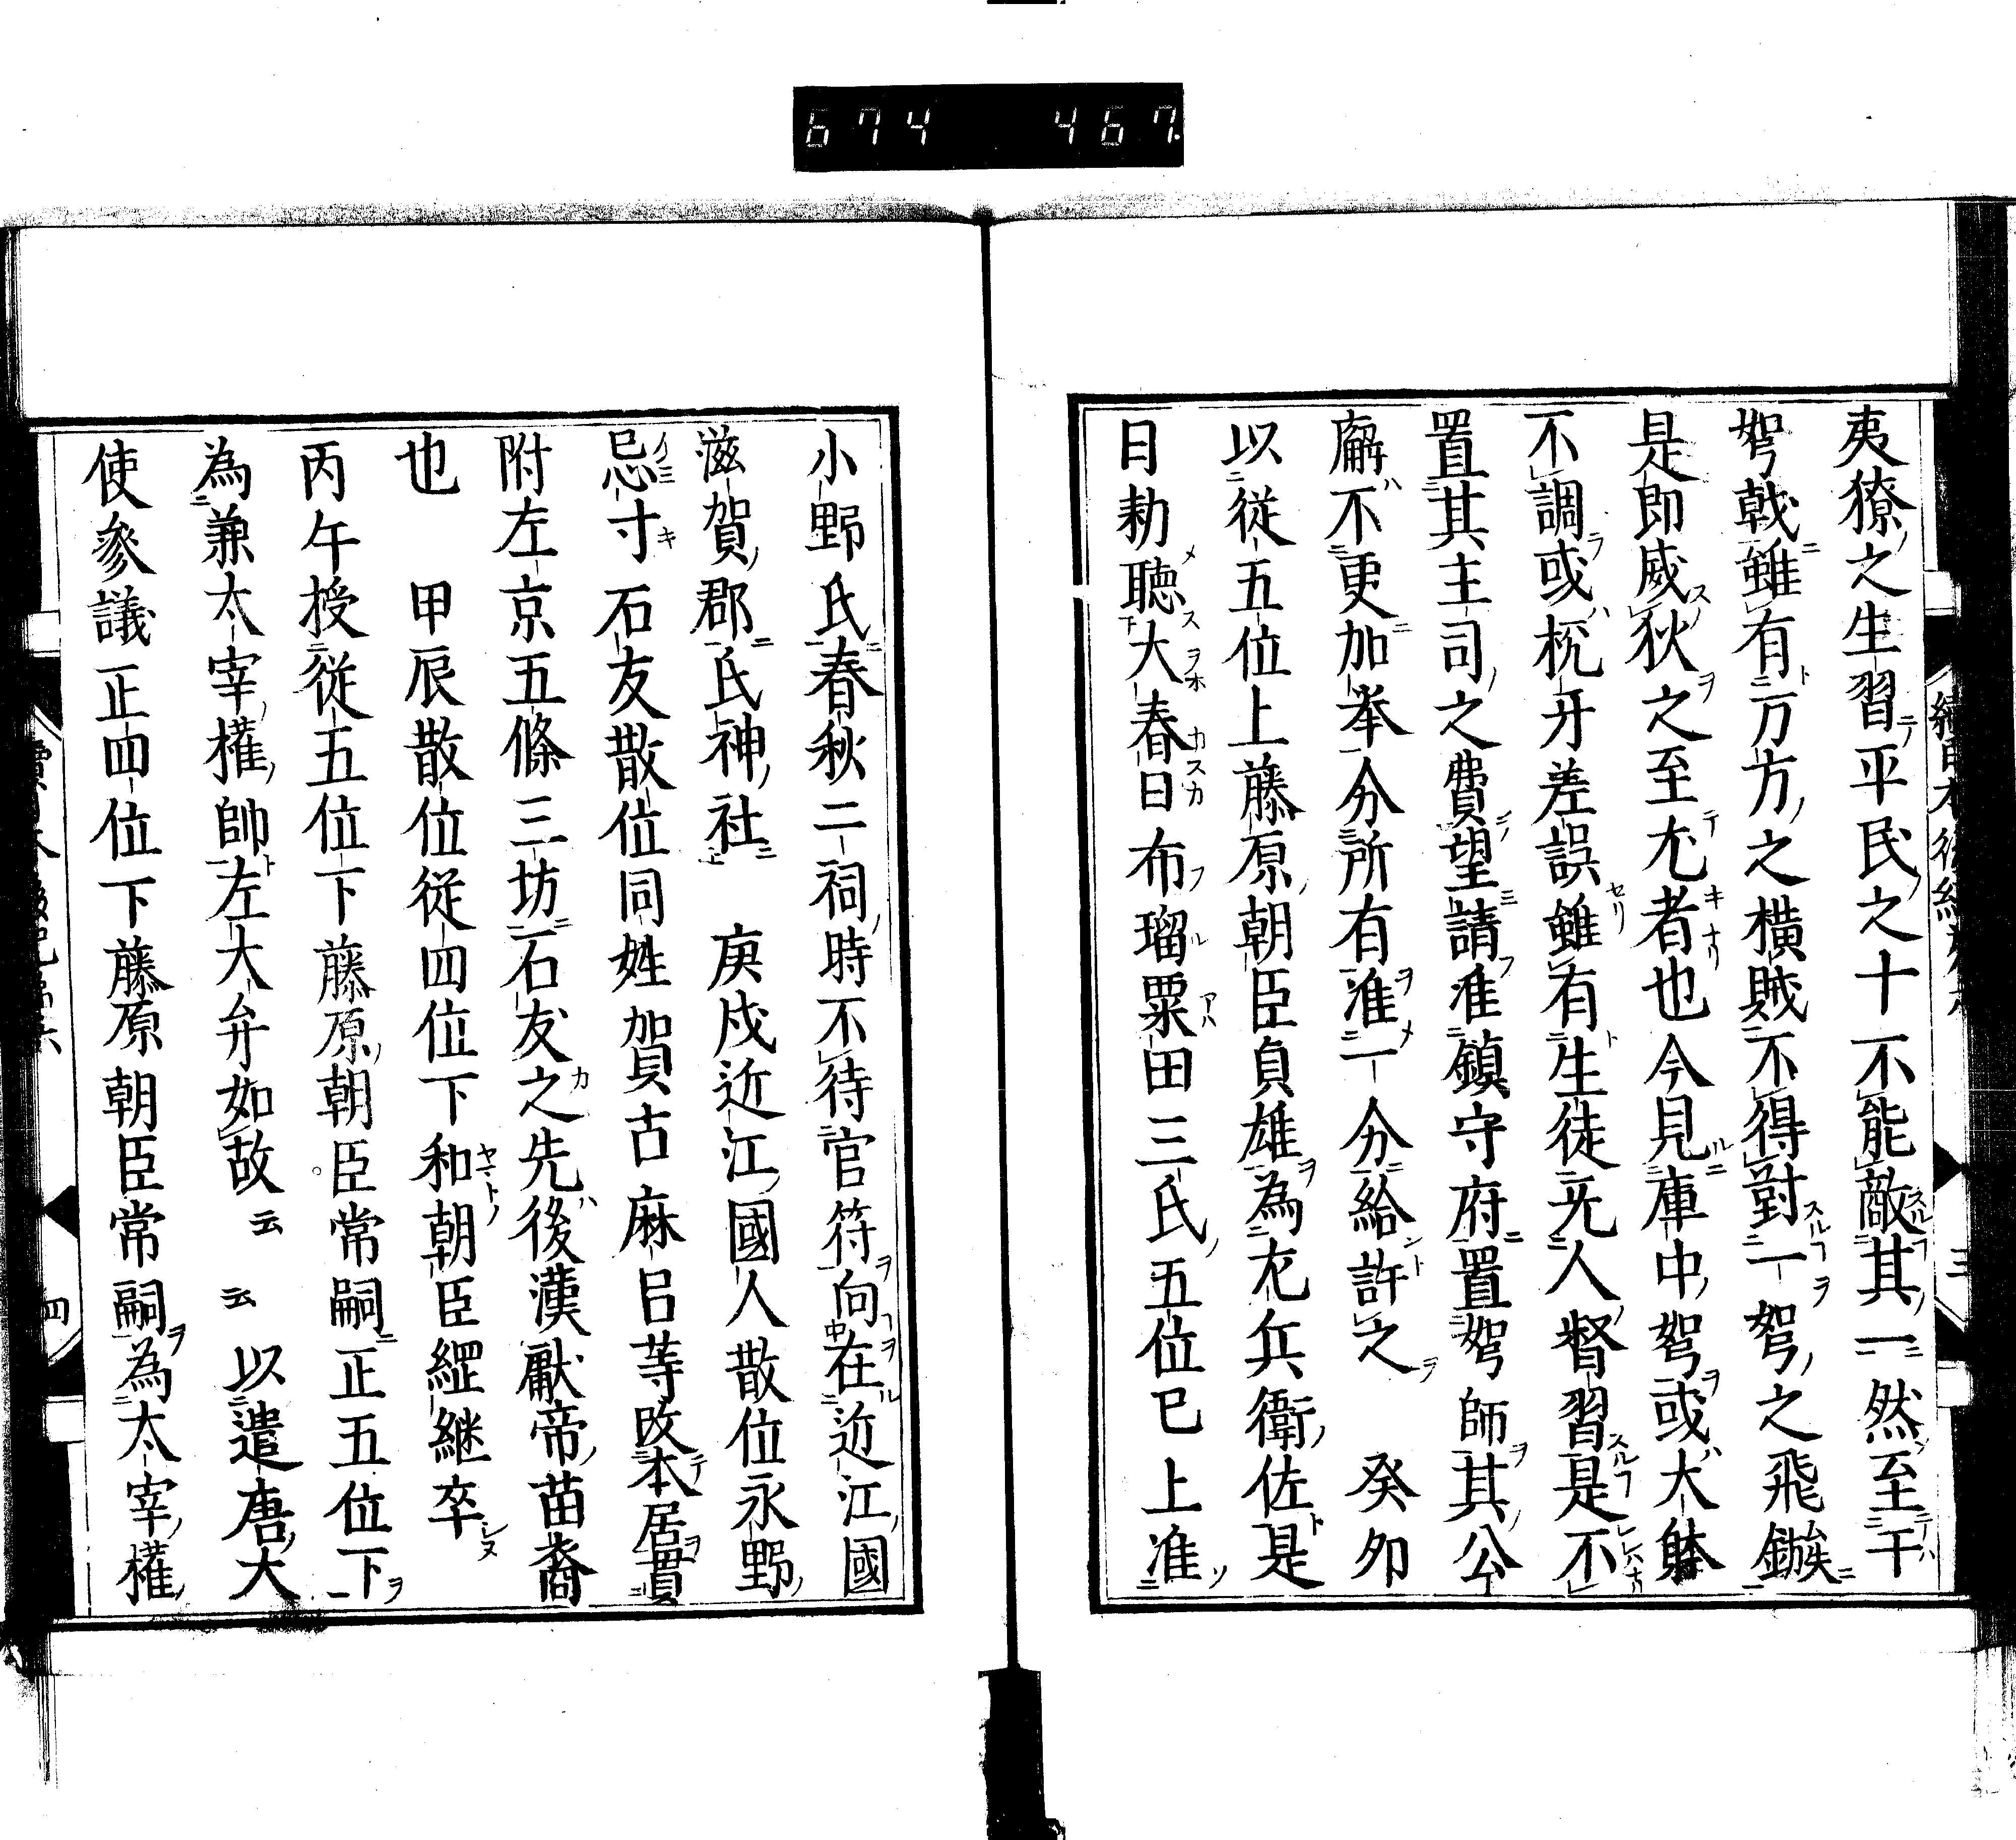 674 467
夷獠之生習平民之十不能敵其一然至干
弩戟雖有万方之橫賊不得對一弩之飛鏃
是即威狄之至尤者也今見庫中弩或大躰
不調或梲牙差誤雖有生徒无人督習是不
置其主司之費望請准鎮守府置弩師其公
廨不更加挙分所有准一分給許之 癸夘
以従五位上藤原朝臣貞雄為左兵衛佐是
日勅聴大春日布瑠粟田三氏五位已上准
小野氏春秋二祠時不待官符向在近江國
滋賀郡氏神社 庚戌近江國人散位永野
忌寸石友散位同姓賀古麻呂等改本居貫
附左京五條三坊石友之先後漢獻帝苗裔
也 甲辰散位従四位下和朝臣縄継卒
丙午授従五位下藤原朝臣常嗣正五位下
為兼太宰權帥左大弁如故云云以遣唐大
使參議正四位下藤原朝臣常嗣為太宰權